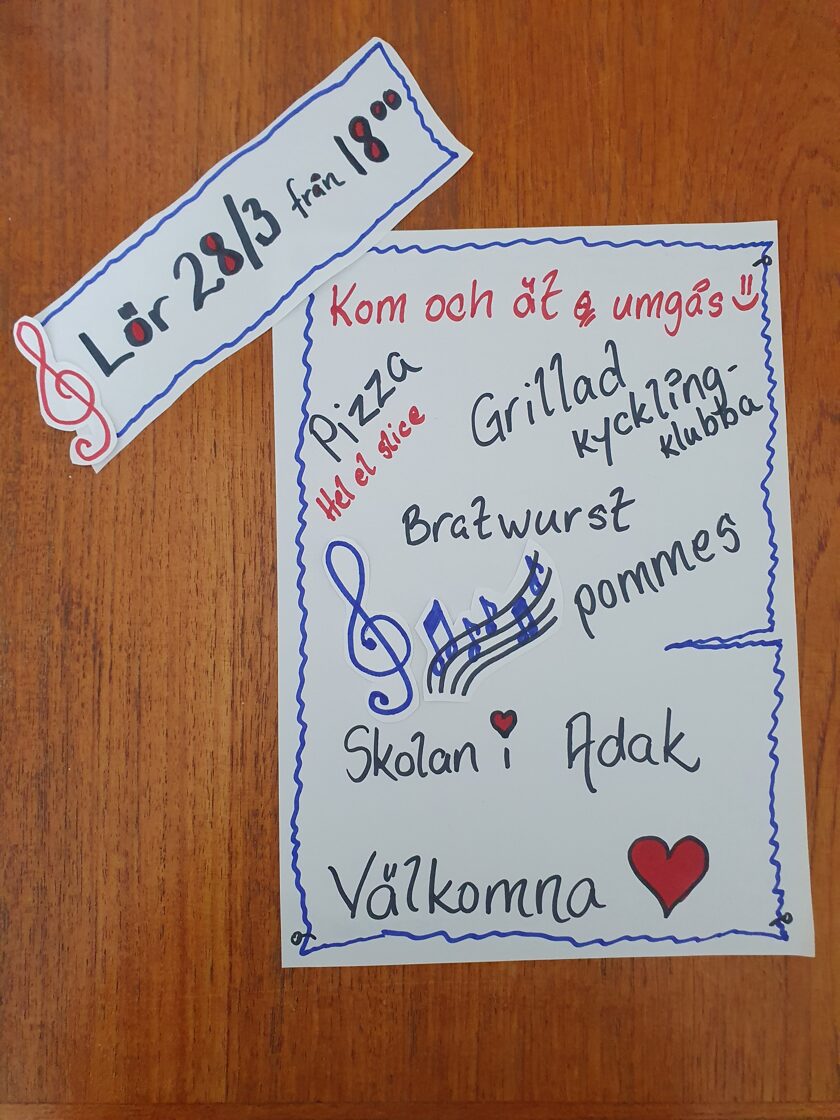 Lör 28/3 från 18⁰⁰
Kom och ät & umgås
Pizza
Hel el slice
Grillad
kyckling-
klubba
Bratwurst
pommes
Skolan i Adak
Välkomna